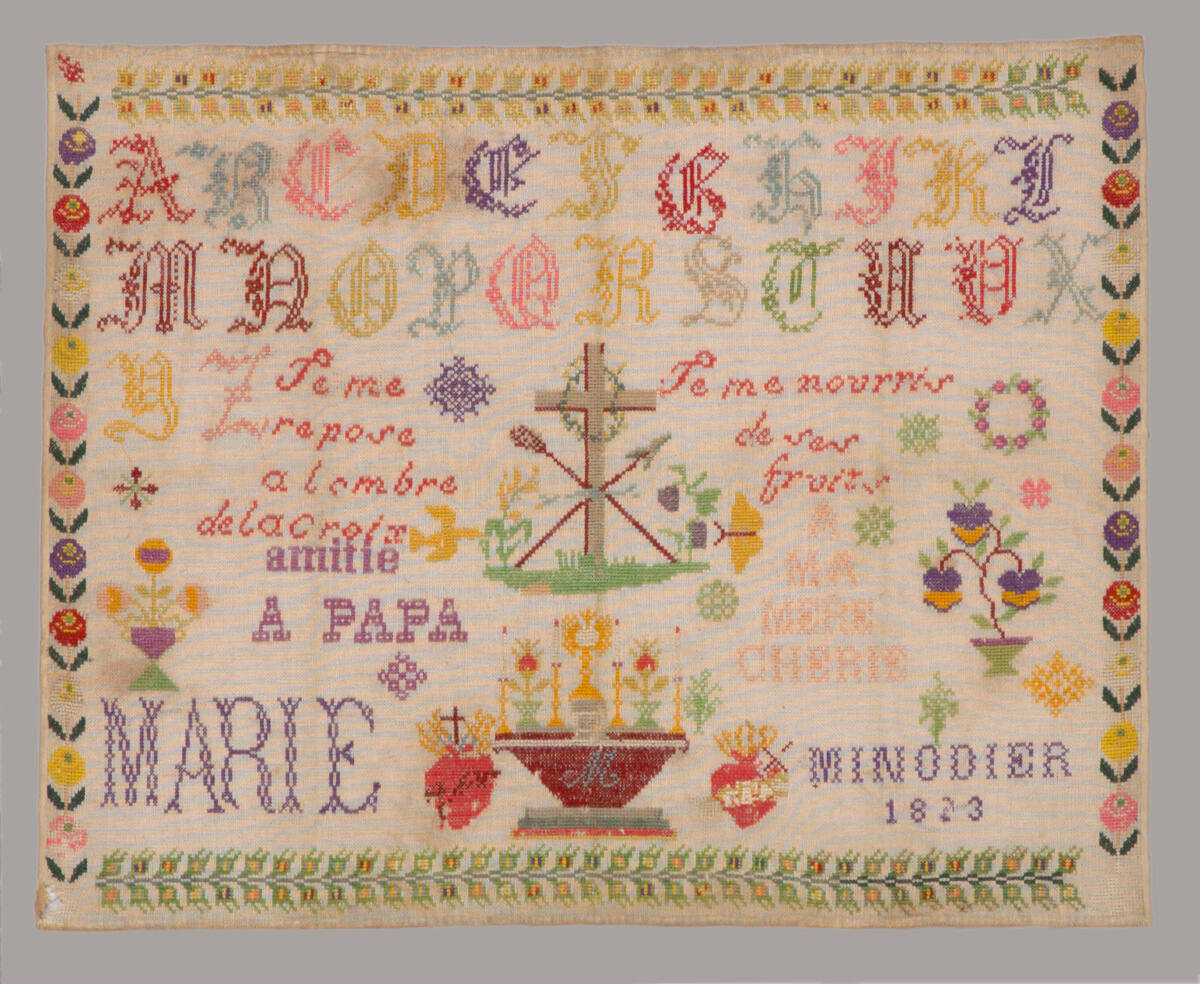 A B C D E F G H I K L
M N O P Q R S T U V X
Y Z
Je me
repose
a lombre
de la Croix
Je me nourris
de ses
fruits
amitie
A PAPA
A
MA
MERE
CHERIE
MARIE
M
MINODIER
1823